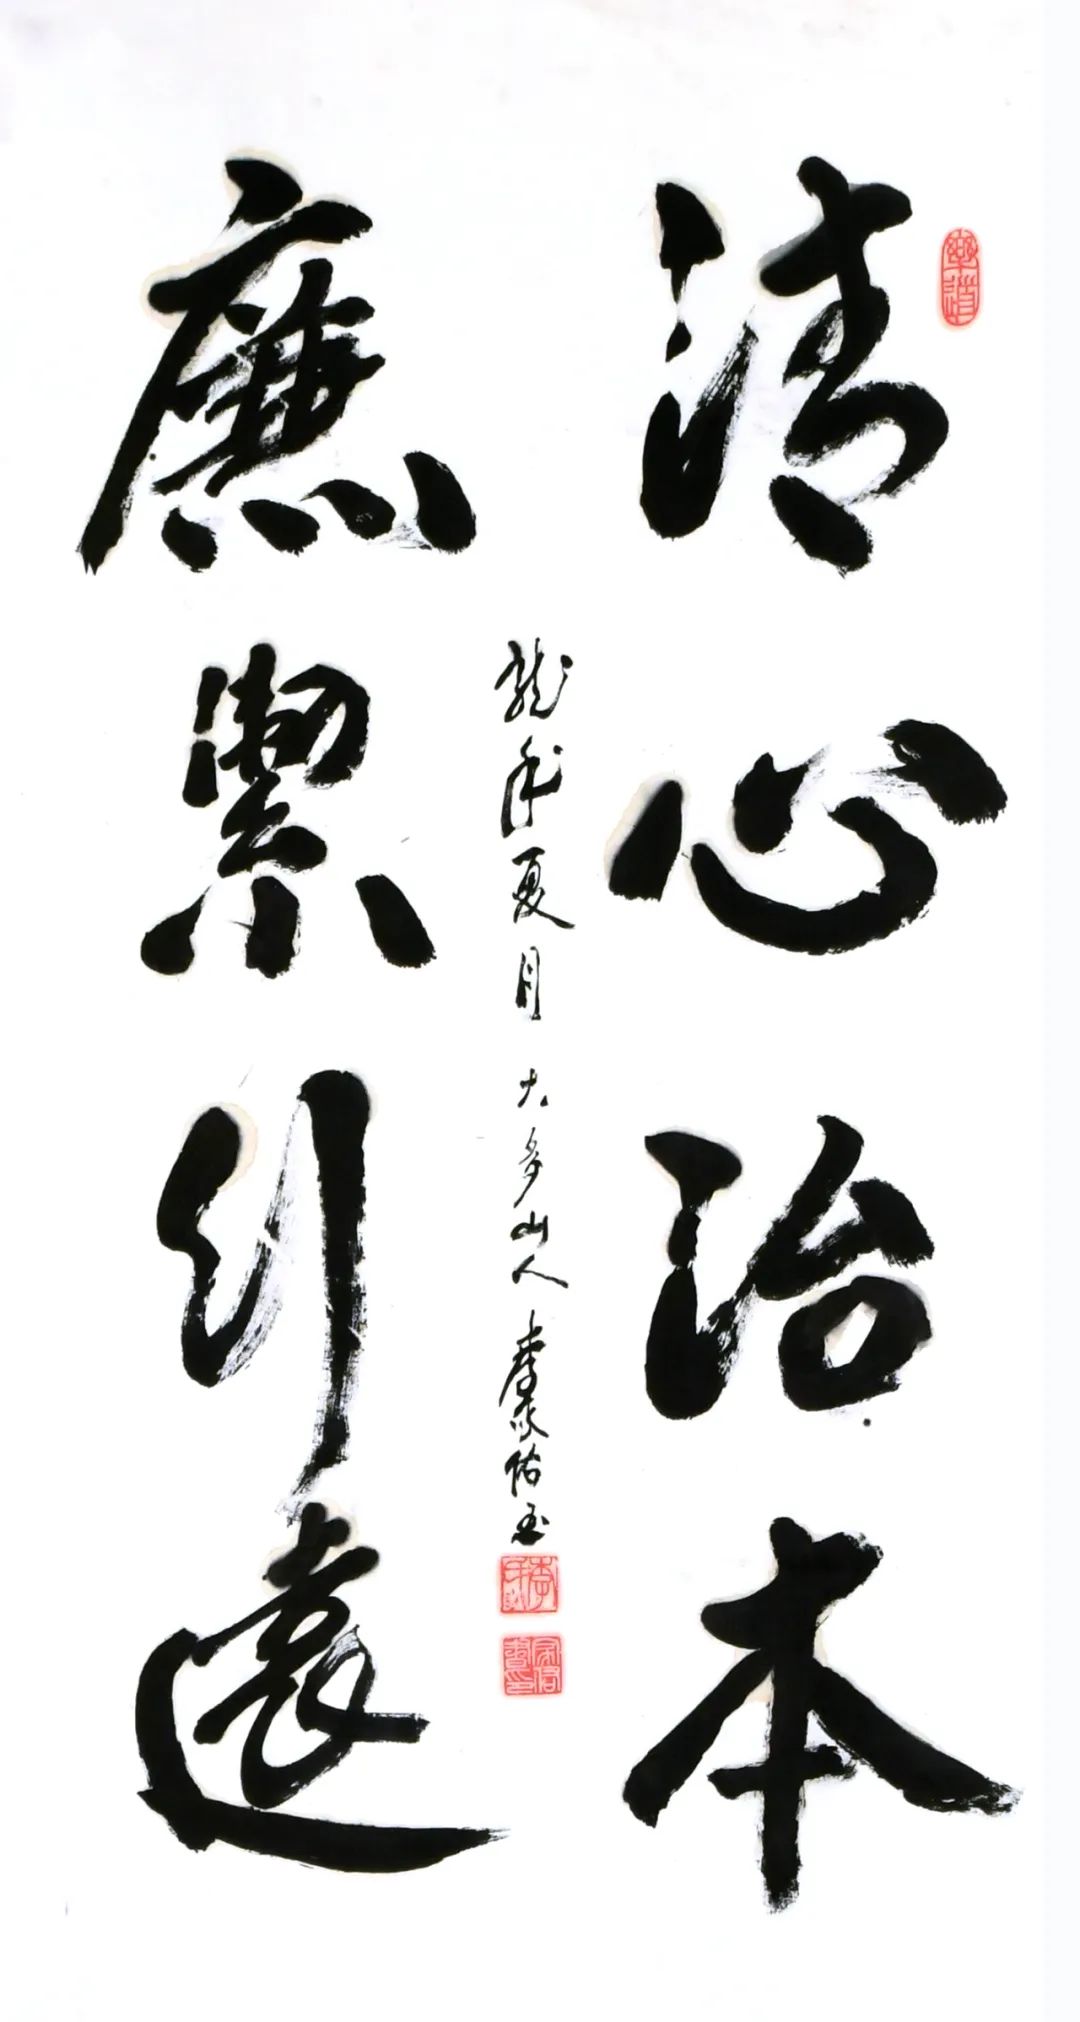 清心治本
廉潔行遠
龍年夏月 大多山人 李家佑書
樂道